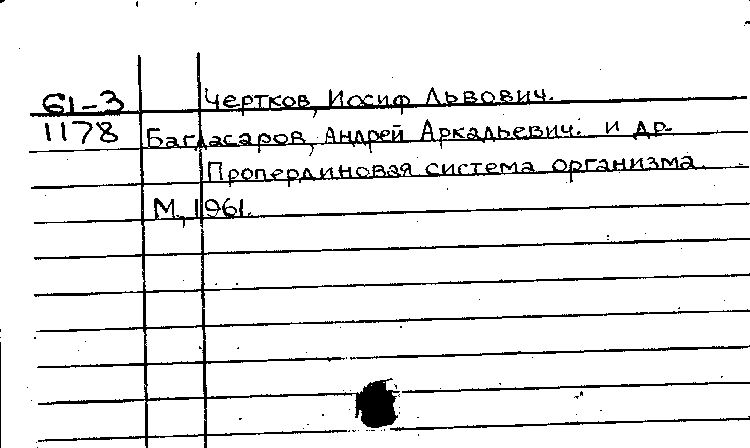 61-3 Чертков, Иосиф Львович.
1178 Багдасаров, Андрей Аркадьевич. и др.
Пропердиновая система организма.
М, 1961.